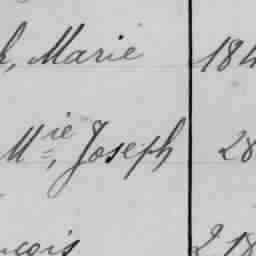 h, Marie 184
Mie, Joseph 28
ncois 218